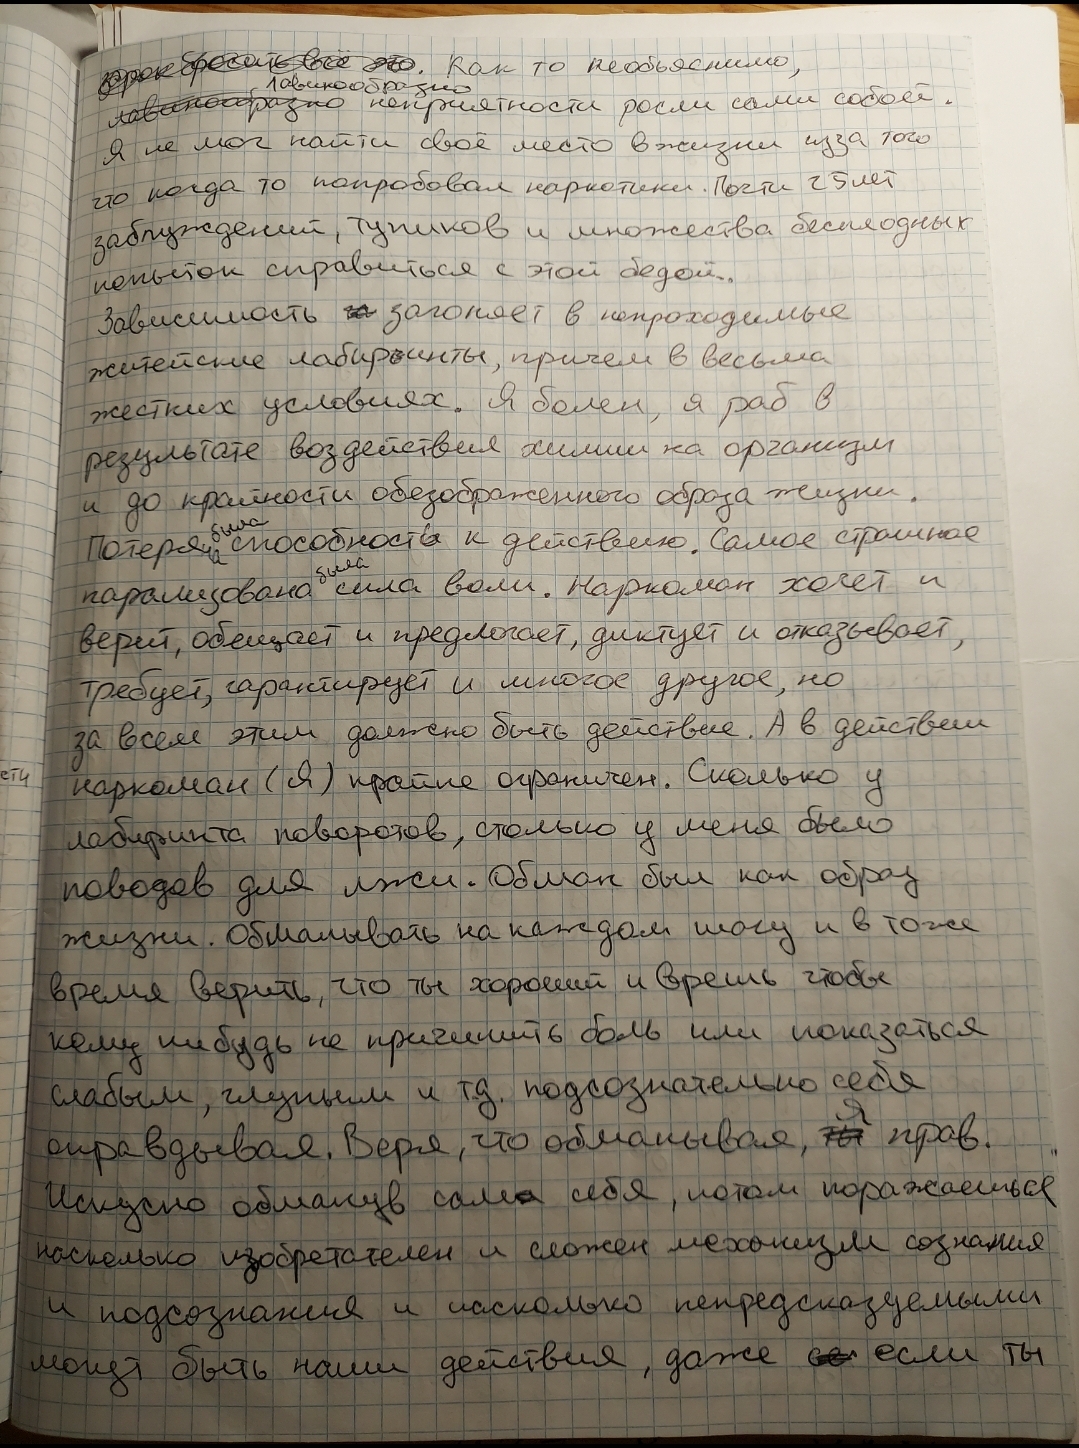 зарок бросать всё это. Как то необъяснимо,
лавинообразно
лавинообразно неприятности росли сами собой.
Я не мог найти своё место в жизни изза того
что когда то попробовал наркотики. Почти 25 лет
заблуждений, тупиков и множества бесплодных
попыток справиться с этой бедой.
Зависимость загоняет в непроходимые
житейские лабиринты, причем в весьма
жестких условиях. Я болен, я раб в
результате воздействия химии на организм
и до крайности обезображенного образа жизни.
была
Потеряна способность к действию. Самое страшное
была
парализована сила воли. Наркоман хочет и
верит, обещает и предлогает, диктует и отказывает,
требует, гарантирует и многое другое, но
за всем этим должно быть действие. А в действии
сти
наркоман (Я) крайне ограничен. Сколько у
лабиринта поворотов, столько у меня было
поводов для лжи. Обман был как образ
жизни. Обманывать на каждом шагу и в тоже
время верить, что ты хороший и врешь чтобы
кому нибудь не причинить боль или показаться
слабым, глупым и т.д. подсознательно себя
оправдывая. Веря, что обманывая, я прав.
Искусно обманув сам себя, потом поражаешься
насколько изобретателен и сложен механизм сознания
и подсознания и насколько непредсказуемыми
могут быть наши действия, даже если ты